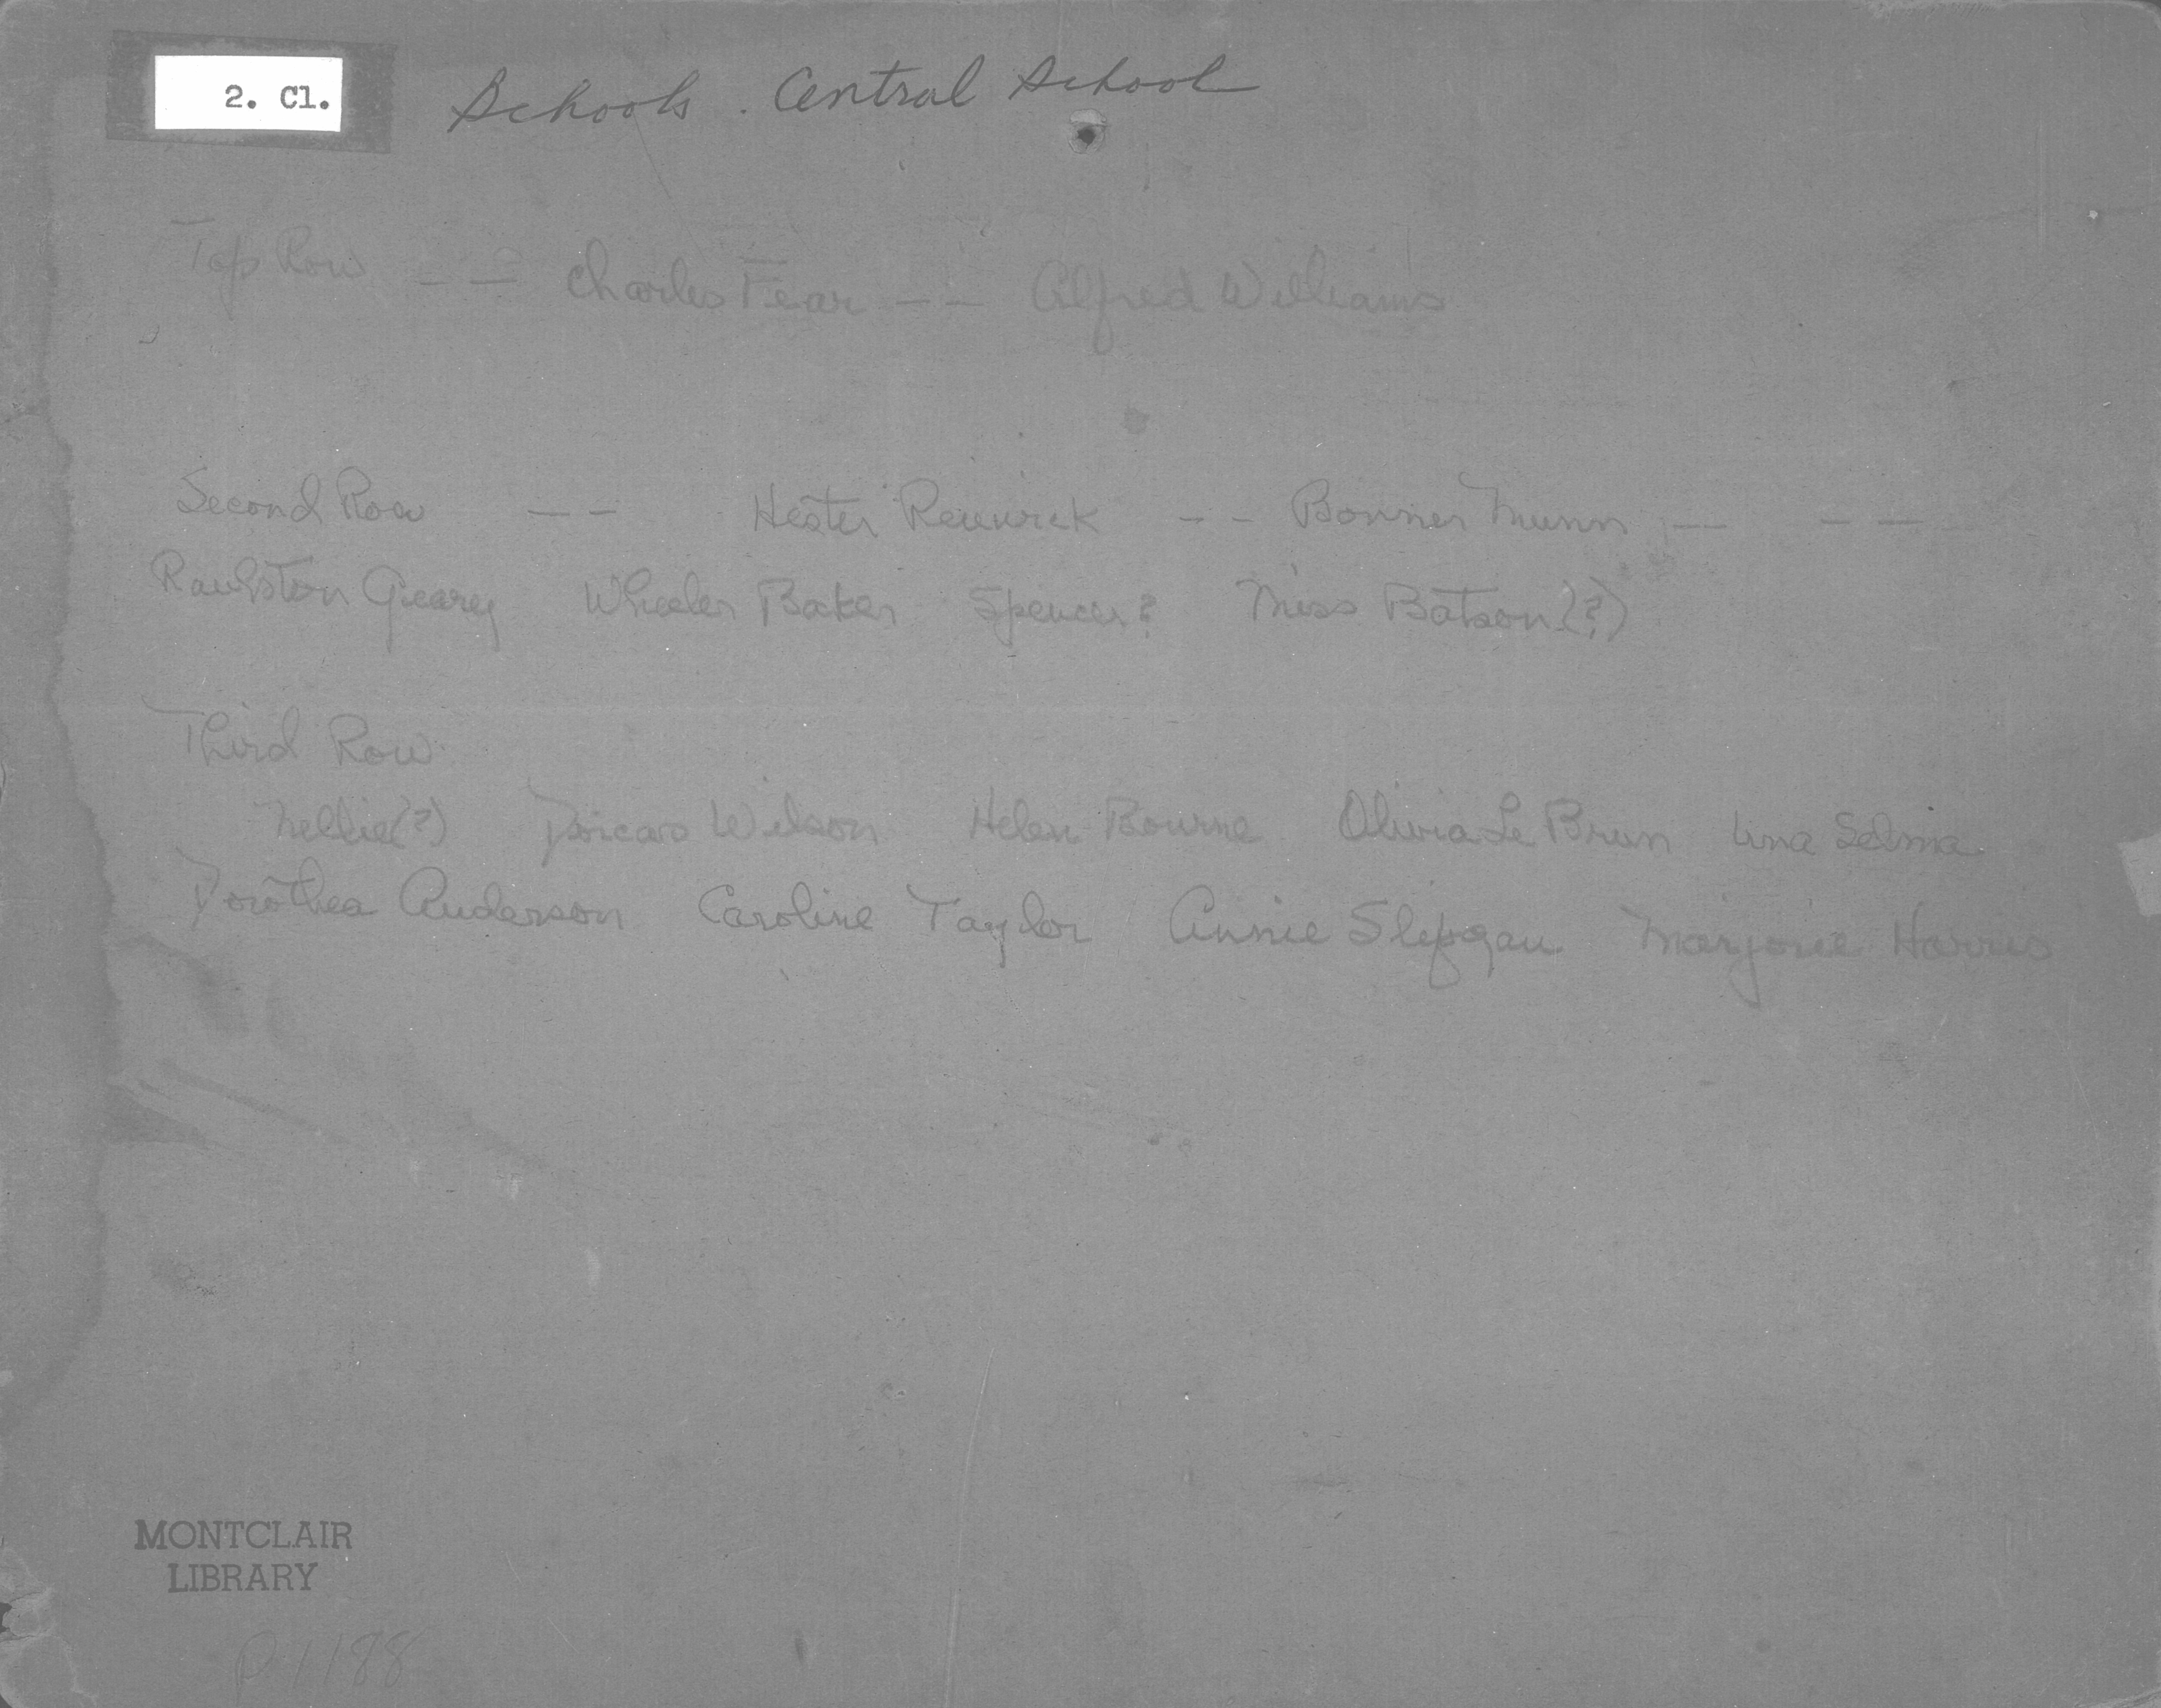 2. Cl.
Schools. Central School
Top Row -- Charles Fear -- Alfred Williams
Second Row -- Hester Renwick -- Bonner Munn -- --
Raulston Gearey Wheeler Baker Spencer? Miss Batson (?)
Third Row
Nellie(?) Dorcas Wilson Helen Bourne Olivia Le Brun Una Selma
Dorothea Anderson Caroline Taylor Annie Marjorie Harris
MONTCLAIR
LIBRARY
P 1188